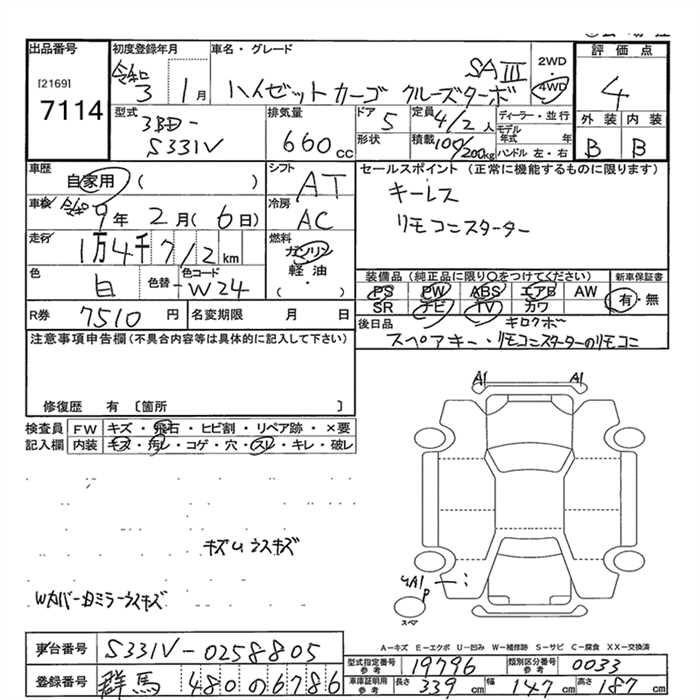 出品番号
[2169]
7114
初度登録年月
令和 3 1月
車名・グレード
ハイゼットカーゴ クルーズターボ SAⅢ
2WD
・
4WD
評価点
4
外装 内装
B B
型式
3BD-
S331V
排気量
660 cc
ドア
5
形状
定員
4/2人
積載 100/200kg
ディーラー・並行
モデル年式 年
ハンドル 左・右
車歴
自家用 ( )
車検 令和 9年 2月(6日)
走行
1万4千712km
色
白
色替-
色コード
W24
シフト
AT
冷房
AC
燃料
ガソリン
軽油
( )
セールスポイント(正常に機能するものに限ります)
キーレス
リモコンスターター
装備品(純正品に限り○をつけてください)
PS PW ABS エアB AW
SR ナビ TV カワ
新車保証書
有・無
後日品
キロクボ
スペアキー・リモコンスターターのリモコン
R券 7510円
名変期限 月 日
注意事項申告欄(不具合内容等は具体的に記入して下さい)
修復歴 有 〔箇所 〕
検査員記入欄
FW キズ・飛石・ヒビ割・リペア跡・×要
内装 キズ・汚レ・コゲ・穴・スレ・キレ・破レ
A1 A1
キズU ウスキズ
Wカバー・ミラーウスキズ
A1
P
スペア
A-キズ E-エクボ U-凹み W-補修跡 S-サビ C-腐食 XX-交換済
車台番号 S331V-0258805
登録番号 群馬 480 の 6786
型式指定番号 参考 19796
類別区分番号 参考 0033
車庫証明用 参考 長さ 339cm 幅 147cm 高さ 187cm